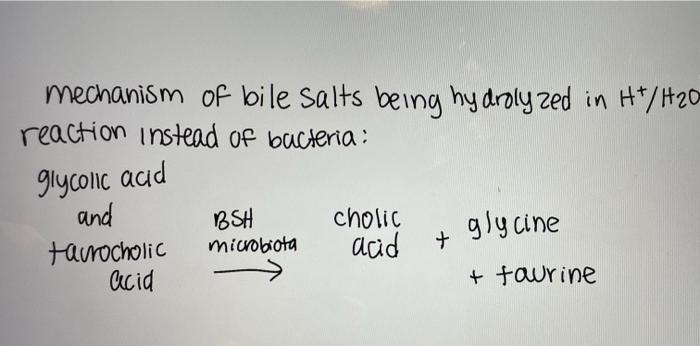 mechanism of bile salts being hydrolyzed in H+/H2O
reaction instead of bacteria:
glycolic acid
and
taurocholic
acid
BSH
microbiota
→
cholic
acid
+ glycine
+ taurine